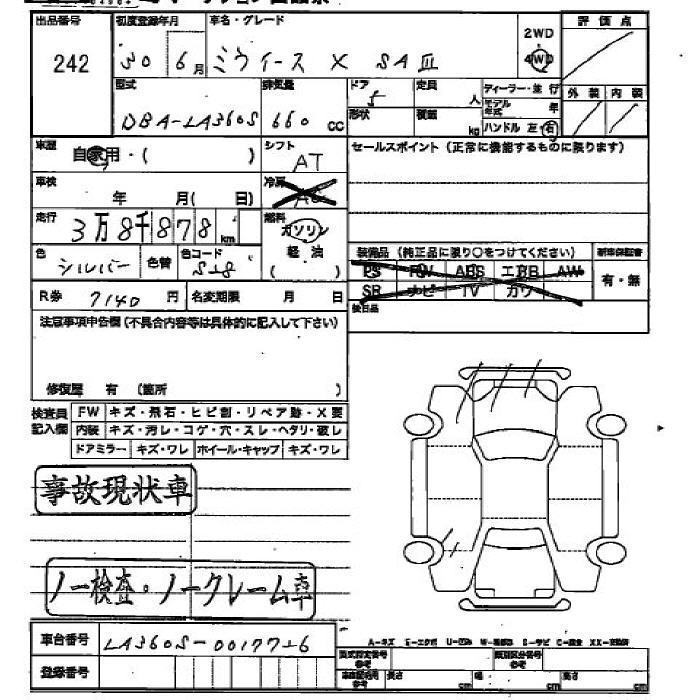 出品番号
242
初度登録年月
30 6月
車名・グレード
ミライース X SAⅢ
2WD
4WD
評価点
型式
DBA-LA360S
排気量
660 cc
ドア
5
形状
定員
人
積載
kg
ディーラー・並行
モデル年式 年
ハンドル 左・右
外装 内装
車歴
自家用・( )
シフト
AT
セールスポイント (正常に機能するものに限ります)
車検
年 月( 日)
冷房
AC
走行
3万8千878 km
燃料
ガソリン
軽油
( )
色
シルバー
色替
色コード
S28
装備品 (純正品に限り○をつけてください)
新車保証書
PS ABS AW
SR ナビ TV カワ
有・無
後日品
R券 7140 円
名変期限 月 日
注意事項申告欄 (不具合内容等は具体的に記入して下さい)
修復歴 有 (箇所 )
検査員記入欄
FW キズ・飛石・ヒビ割・リペア跡・X要
内装 キズ・汚レ・コゲ・穴・スレ・ヘタリ・破レ
ドアミラー キズ・ワレ ホイール・キャップ キズ・ワレ
事故現状車
ノー検査・ノークレーム車
車台番号
LA360S-0017726
登録番号
型式指定番号
参考
類別区分番号
参考
長さ cm 幅 cm 高さ cm